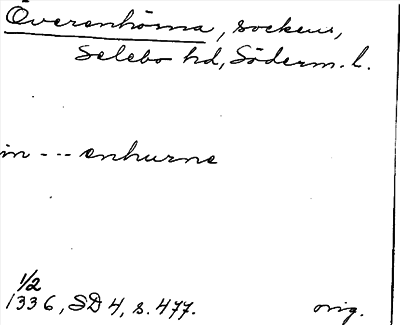 Överenhörna, socken,
Selebo hd, Söderm. l.
in --- enhurne
1/2
1336, SD 4, s. 477. orig.